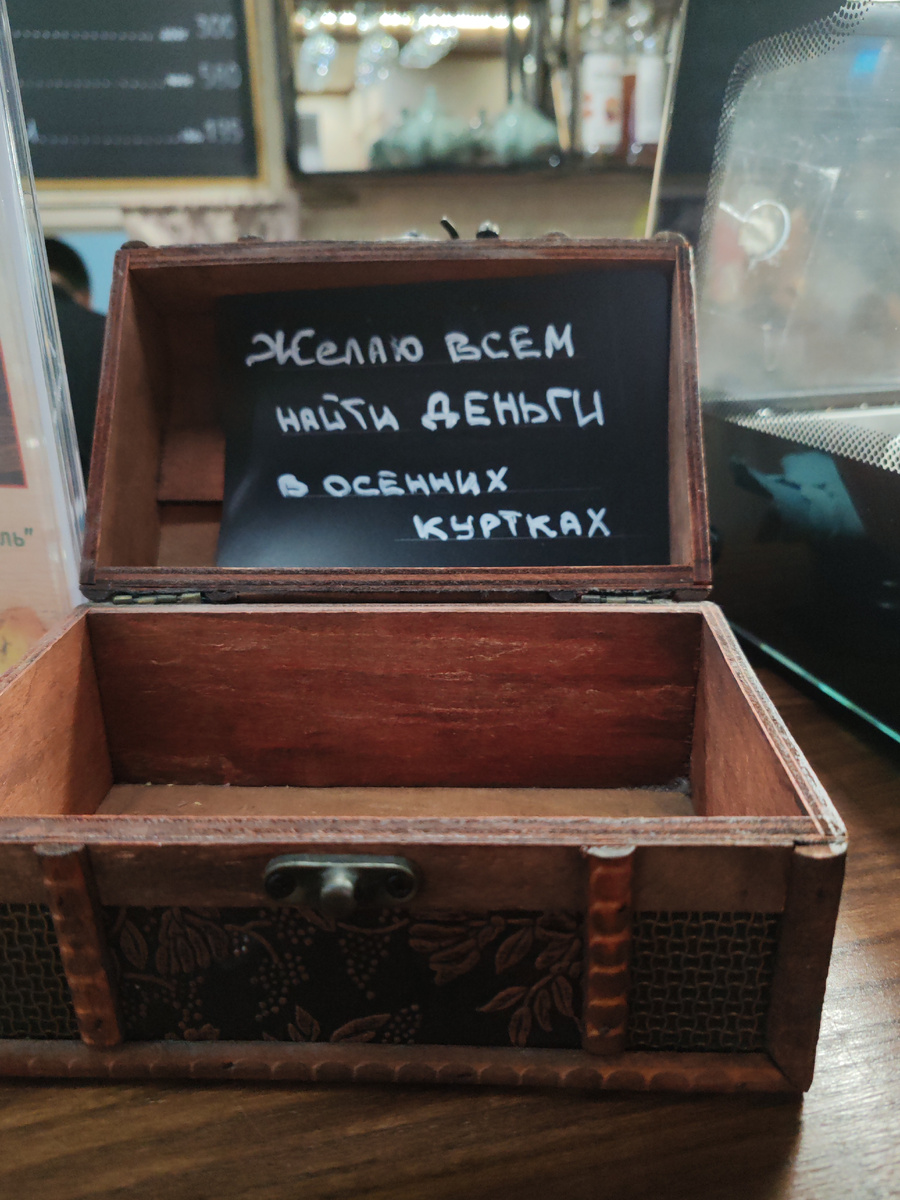 300
Желаю ВСЕМ
НАЙТИ ДЕНЬГИ
В ОСЕННИХ
КУРТКАХ
ль"